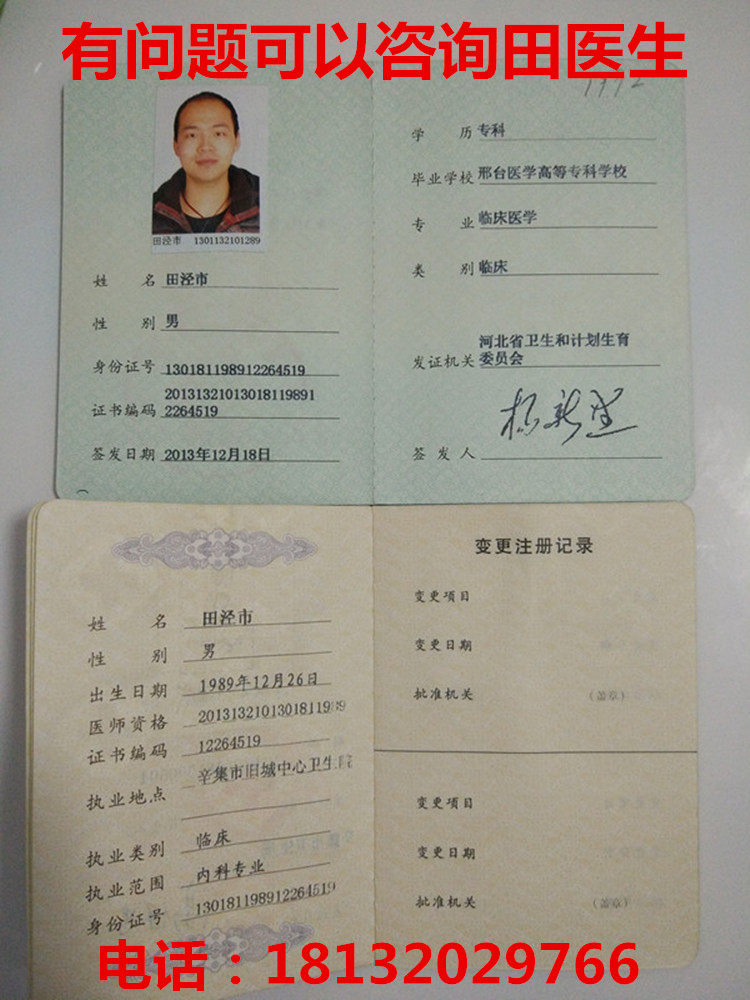 有问题可以咨询田医生
1992
田泾市 1301132101289
姓 名 田泾市
性 别 男
身份证号 130181198912264519
证书编码 20131321013018119891
2264519
签发日期 2013年12月18日
学 历 专科
毕业学校 邢台医学高等专科学校
专 业 临床医学
类 别 临床
发证机关 河北省卫生和计划生育
委员会
签 发 人
姓 名 田泾市
性 别 男
出生日期 1989年12月26日
医师资格 2013132101301811989
证书编码 12264519
执业地点 辛集市旧城中心卫生院
执业类别 临床
执业范围 内科专业
身份证号 130181198912264519
变更注册记录
变更项目
变更日期
批准机关 (盖章)
变更项目
变更日期
批准机关 (盖章)
电话：18132029766